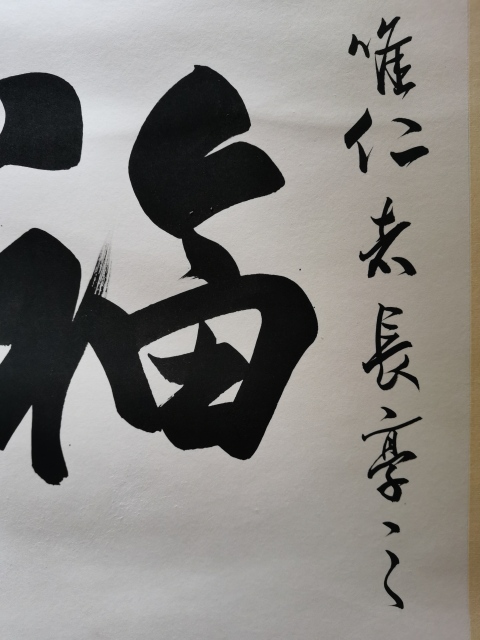 唯仁者長享之
福